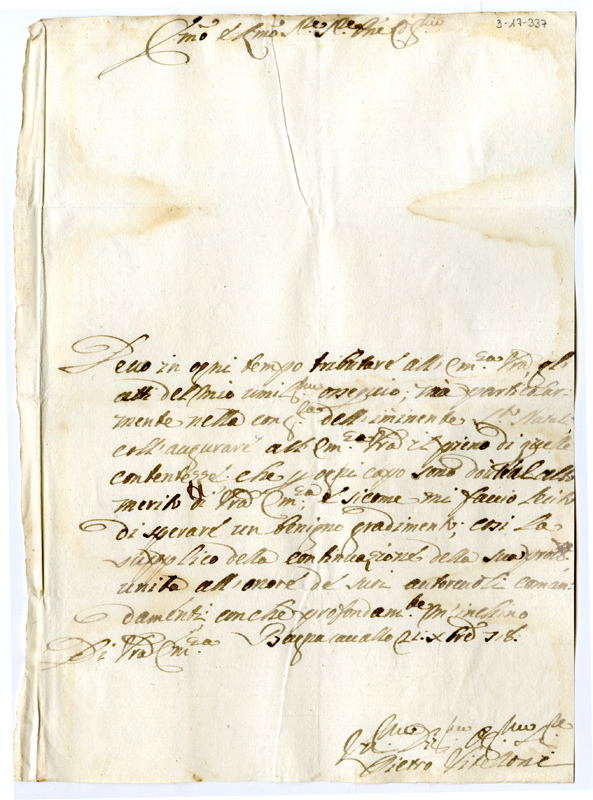 3-17-337
Em.o e Rmo Sig.re Sig.re Pne Col.mo
Devo in ogni tempo tributare all'Em.za Vra gli
atti del mio umil.mo ossequio, mà particolar=
mente nella cong.ra dell'iminente S.to Natale
coll'augurare all'Em.za Vra il pieno di quele
contentezze, che per ogni capo sono dovute al alto
merito di Vra Em.za, e sicome mi faccio lecito
di sperare un benigno gradimento, cosi La
supplico della continuazione della sua prott.ne
unita all'onore de suoi autorevoli coman=
damenti, con che profondam.te m'inchino
Di Vra Em.za Bagnacavallo 21 Xbre 718.
Pietro